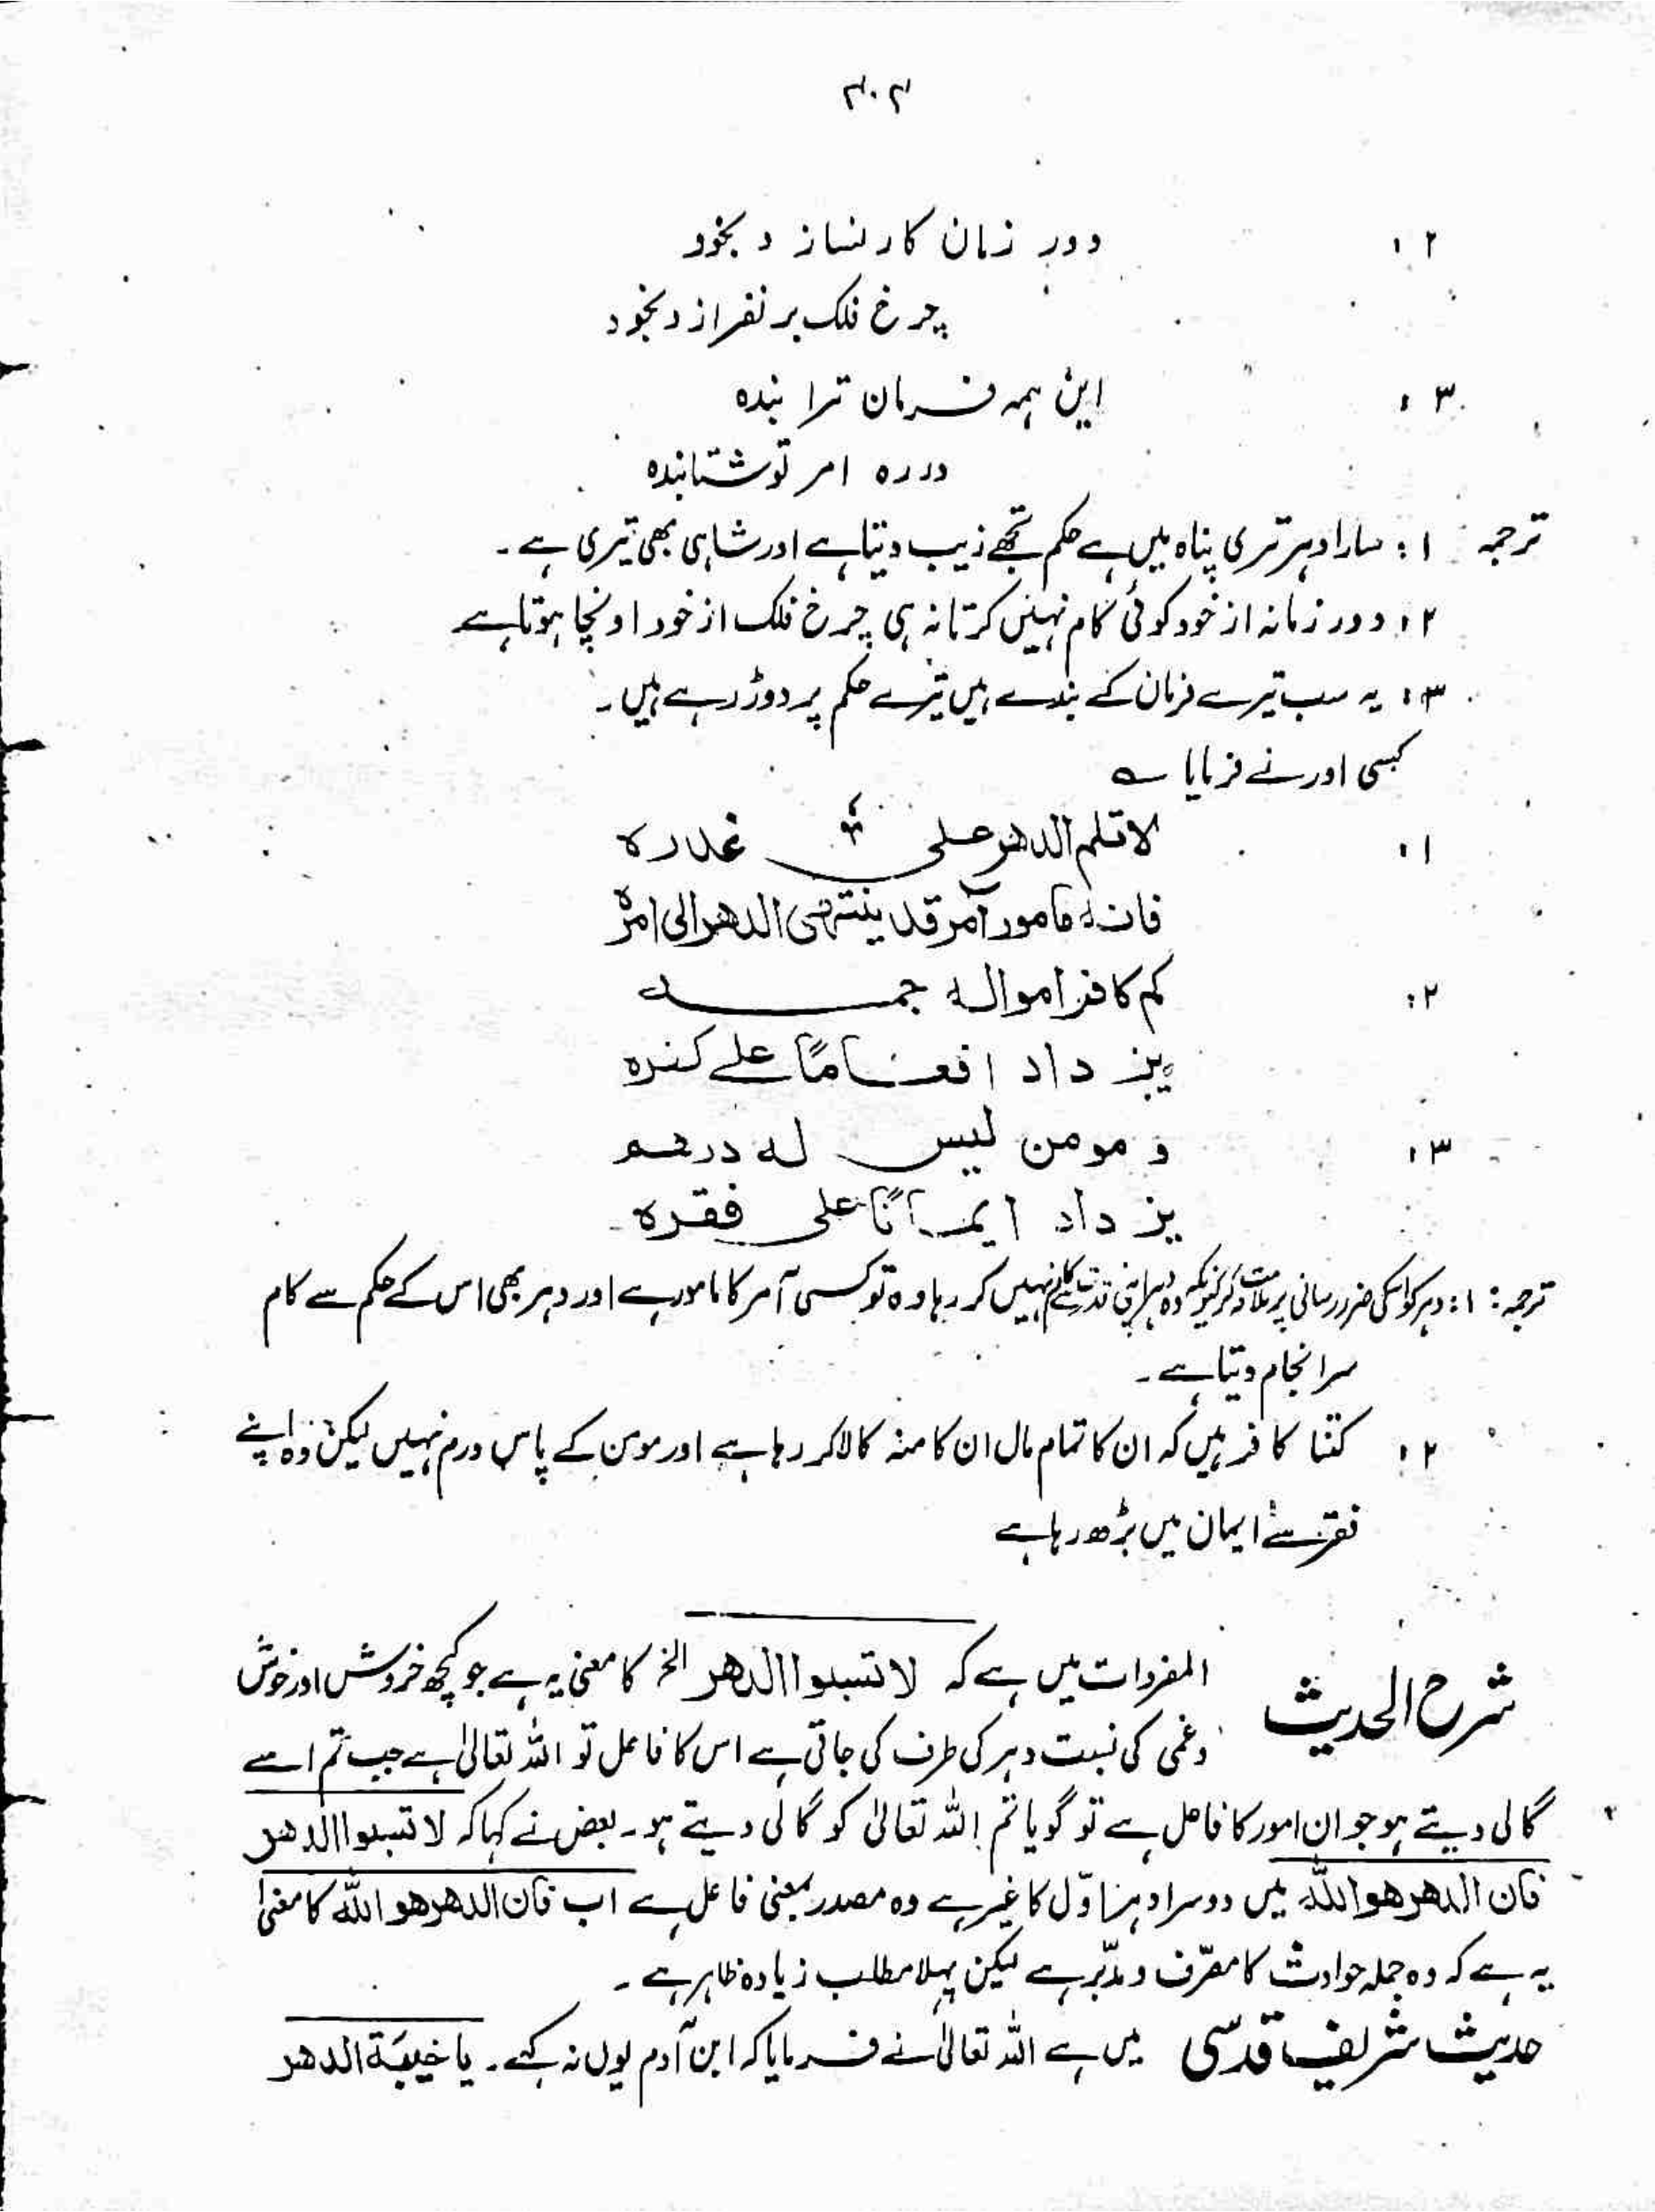 ۳۰۳
۲: دور زمان کار نسازد بخود
چرخ فلک بر نفرازد بخود
۳: این ہمہ فرمان ترا بندہ
در رہ امر توشتابندہ
ترجمہ ۱: سارا دہر تیری پناہ میں ہے حکم تجھے زیب دیتا ہے اور شاہی بھی تیری ہے۔
۲: دور زمانہ از خود کوئی کام نہیں کرتا نہ ہی چرخ فلک از خود اونچا ہوتا ہے
۳: یہ سب تیرے فرمان کے بندے ہیں تیرے حکم پر دوڑ رہے ہیں۔
کسی اور نے فرمایا ؎
۱: لا تلم الدهر على غدره
فانه مامور آمر قد ينتهى الدهر الى امره
۲: كم كافر امواله جمه
يزداد اضعافا على كفره
۳: و مومن ليس له درهم
يزداد ايمانًا على فقره۔
ترجمہ: ۱: دہر کو اسکی ضرر رسانی پر ملامت نہ کر کیونکہ وہ دہر اپنی قدرت سے کام نہیں کر رہا وہ تو کسی آمر کا مامور ہے اور دہر بھی اس کے حکم سے کام
سرانجام دیتا ہے۔
۲: کتنا کافر ہیں کہ ان کا تمام مال ان کا منہ کالا کر رہا ہے اور مومن کے پاس درہم نہیں لیکن وہ اپنے
فقر سے ایمان میں بڑھ رہا ہے
شرح الحدیث المفردات میں ہے کہ لا تسبوا الدهر الخ کا معنی یہ ہے جو کچھ خروش اور خوش
وغمی کی نسبت دہر کی طرف کی جاتی ہے اس کا فاعل تو اللہ تعالیٰ ہے جب تم اسے
گالی دیتے ہو جو ان امور کا فاعل ہے تو گویا تم اللہ تعالیٰ کو گالی دیتے ہو۔ بعض نے کہا کہ لا تسبوا الدهر
فان الدهر هو الله میں دوسرا دہر اوّل کا غیر ہے وہ مصدر بمعنی فاعل ہے اب فان الدهر هو الله کا معنیٰ
یہ ہے کہ وہ جملہ حوادث کا مصرّف و مدبّر ہے لیکن پہلا مطلب زیادہ ظاہر ہے۔
حدیث شریف قدسی میں ہے اللہ تعالیٰ نے فرمایا کہ ابن آدم یوں نہ کہے۔ یا خیبَة الدهر